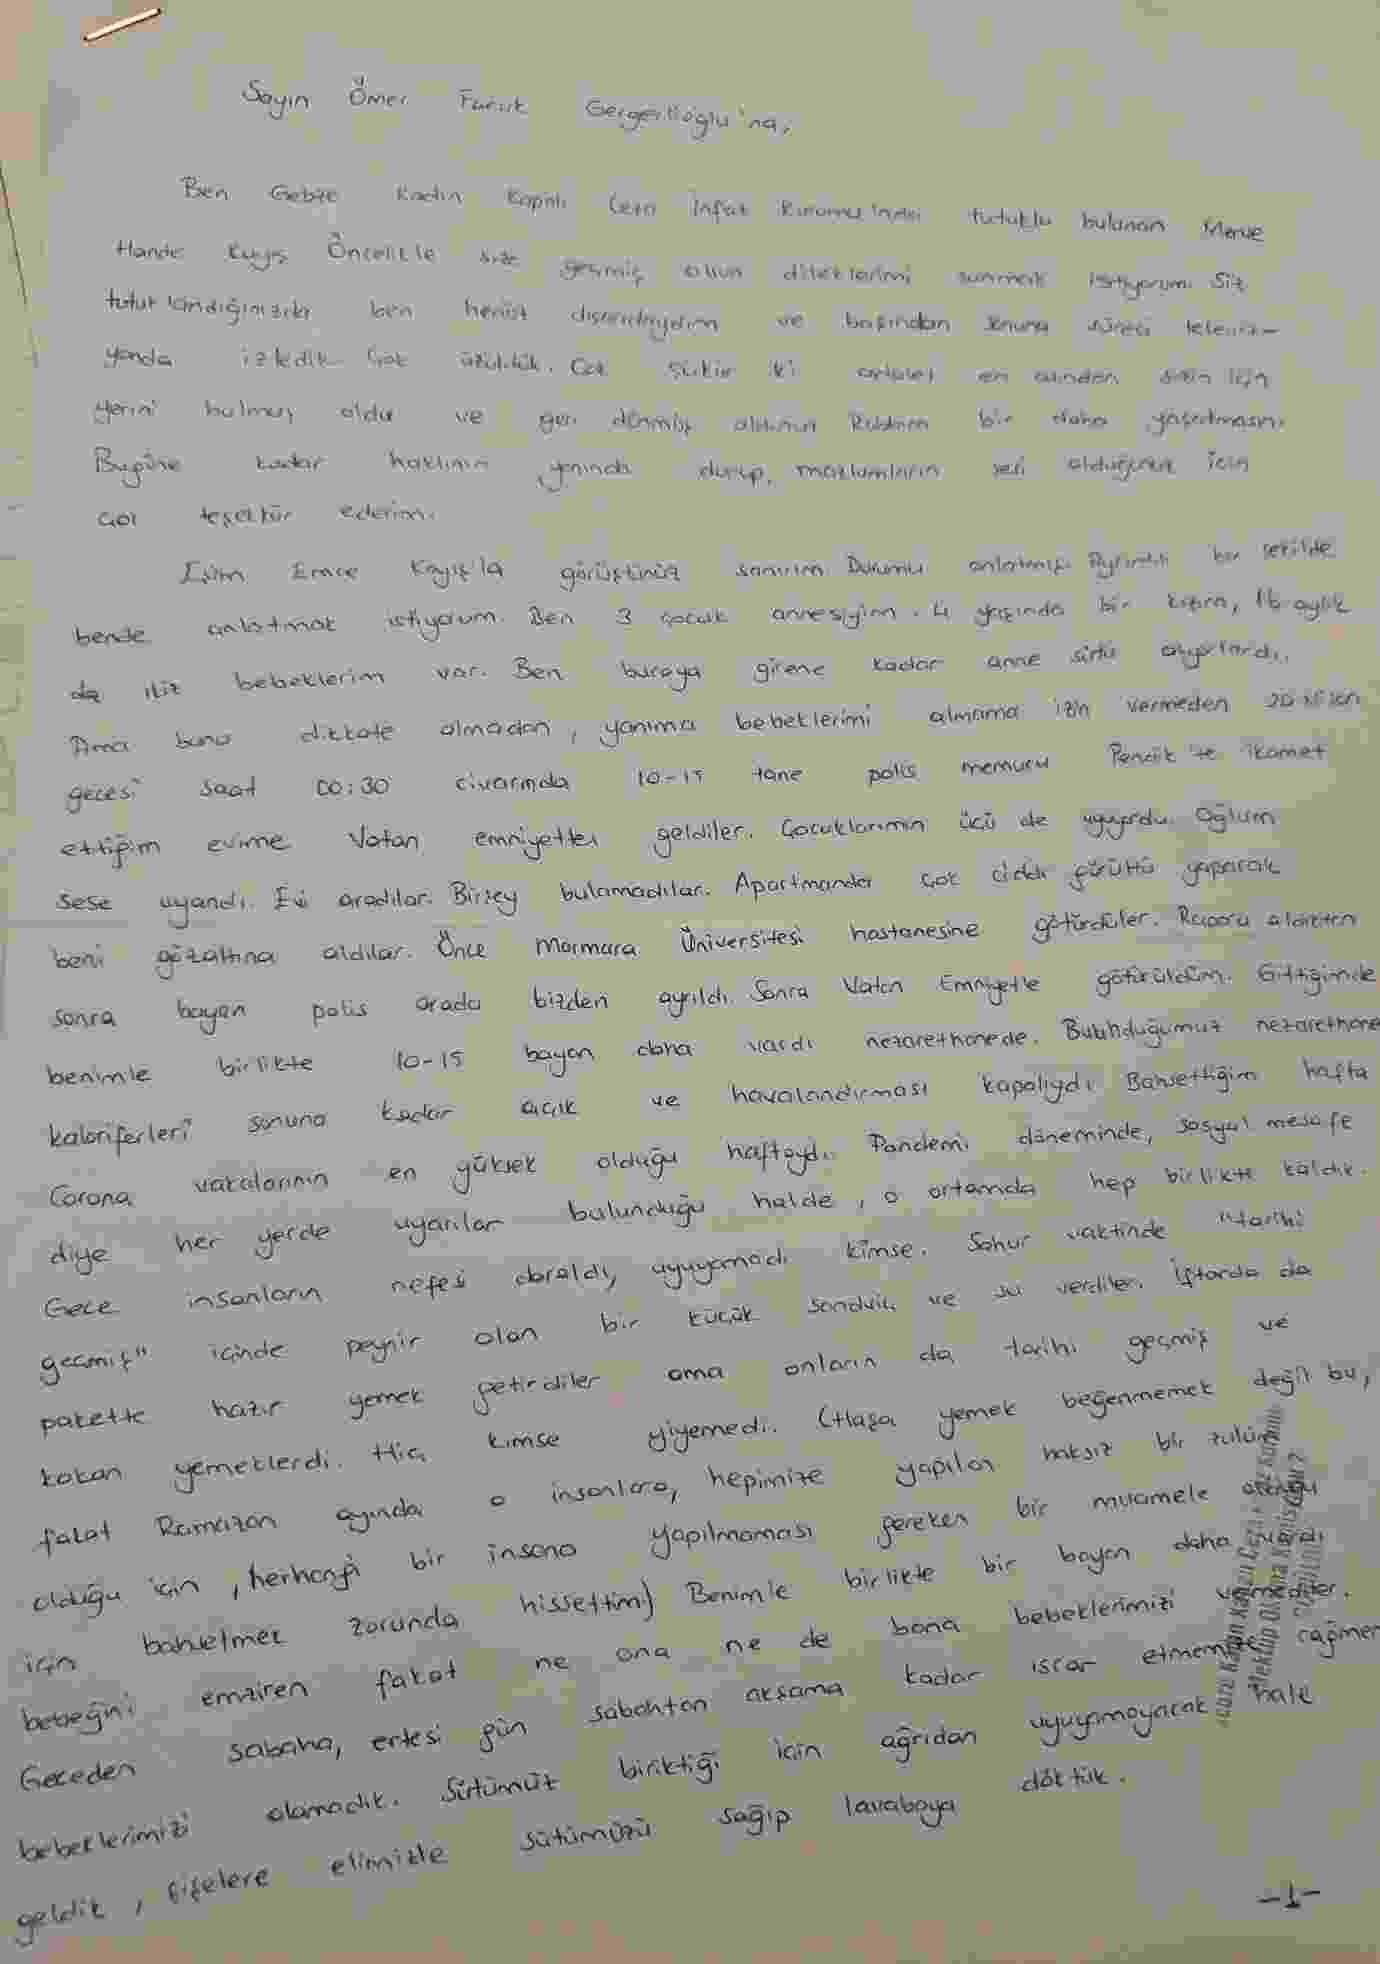 Sayın Ömer Faruk Gergerlioğlu'na,
Ben Gebze Kadın Kapalı Ceza İnfaz Kurumu'nda tutuklu bulunan Merve
Hande Kayış. Öncelikle size geçmiş olsun dileklerimi sunmak istiyorum. Siz
tutuklandığınızda ben henüz dışarıdaydım ve başından sonuna süreci televiz-
yonda izledik. Çok üzüldük. Çok şükür ki adalet en azından sizin için
yerini bulmuş oldu ve geri dönmüş oldunuz. Rabbim bir daha yaşatmasın.
Bugüne kadar haklının yanında durup, mazlumların sesi olduğunuz için
çok teşekkür ederim.
Eşim Emre Kayış'la görüştünüz sanırım. Durumu anlatmış. Ayrıntılı bir şekilde
bende anlatmak istiyorum. Ben 3 çocuk annesiyim. 4 yaşında bir kızım, 16 aylık
da ikiz bebeklerim var. Ben buraya girene kadar anne sütü alıyorlardı.
Ama bunu dikkate almadan, yanıma bebeklerimi almama izin vermeden 20 Nisan
gecesi saat 00:30 civarında 10-15 tane polis memuru Pendik'te ikamet
ettiğim evime Vatan emniyetten geldiler. Çocuklarımın üçü de uyuyordu. Oğlum
sese uyandı. Evi aradılar. Birşey bulamadılar. Apartmanda çok ciddi gürültü yaparak
beni gözaltına aldılar. Önce Marmara Üniversitesi hastanesine götürdüler. Raporu aldıktan
sonra bayan polis arada bizden ayrıldı. Sonra Vatan Emniyet'e götürüldüm. Gittiğimde
benimle birlikte 10-15 bayan daha vardı nezarethanede. Bulunduğumuz nezarethane
kaloriferleri sonuna kadar açık ve havalandırması kapalıydı. Bahsettiğim hafta
Corona vakalarının en yüksek olduğu haftaydı. Pandemi döneminde, sosyal mesafe
diye her yerde uyarılar bulunduğu halde, o ortamda hep birlikte kaldık.
Gece insanların nefesi daraldı, uyuyamadı kimse. Sahur vaktinde "tarihi
geçmiş" içinde peynir olan bir küçük sandviç ve su verdiler. İftarda da
pakette hazır yemek getirdiler ama onların da tarihi geçmiş ve
kokan yemeklerdi. Hiç kimse yiyemedi. (Haşa yemek beğenmemek değil bu,
fakat Ramazan ayında o insanlara, hepimize yapılan haksız bir zulüm
olduğu için, herhangi bir insana yapılmaması gereken bir muamele olduğu
için bahsetmek zorunda hissettim) Benimle birlikte bir bayan daha vardı
bebeğini emziren fakat ne ona ne de bana bebeklerimizi vermediler.
Geceden sabaha, ertesi gün sabahtan akşama kadar ısrar etmemize rağmen
bebeklerimizi alamadık. Sütümüz biriktiği için ağrıdan uyuyamayacak hale
geldik, şişelere elimizle sütümüzü sağıp lavaboya döktük.
-1-